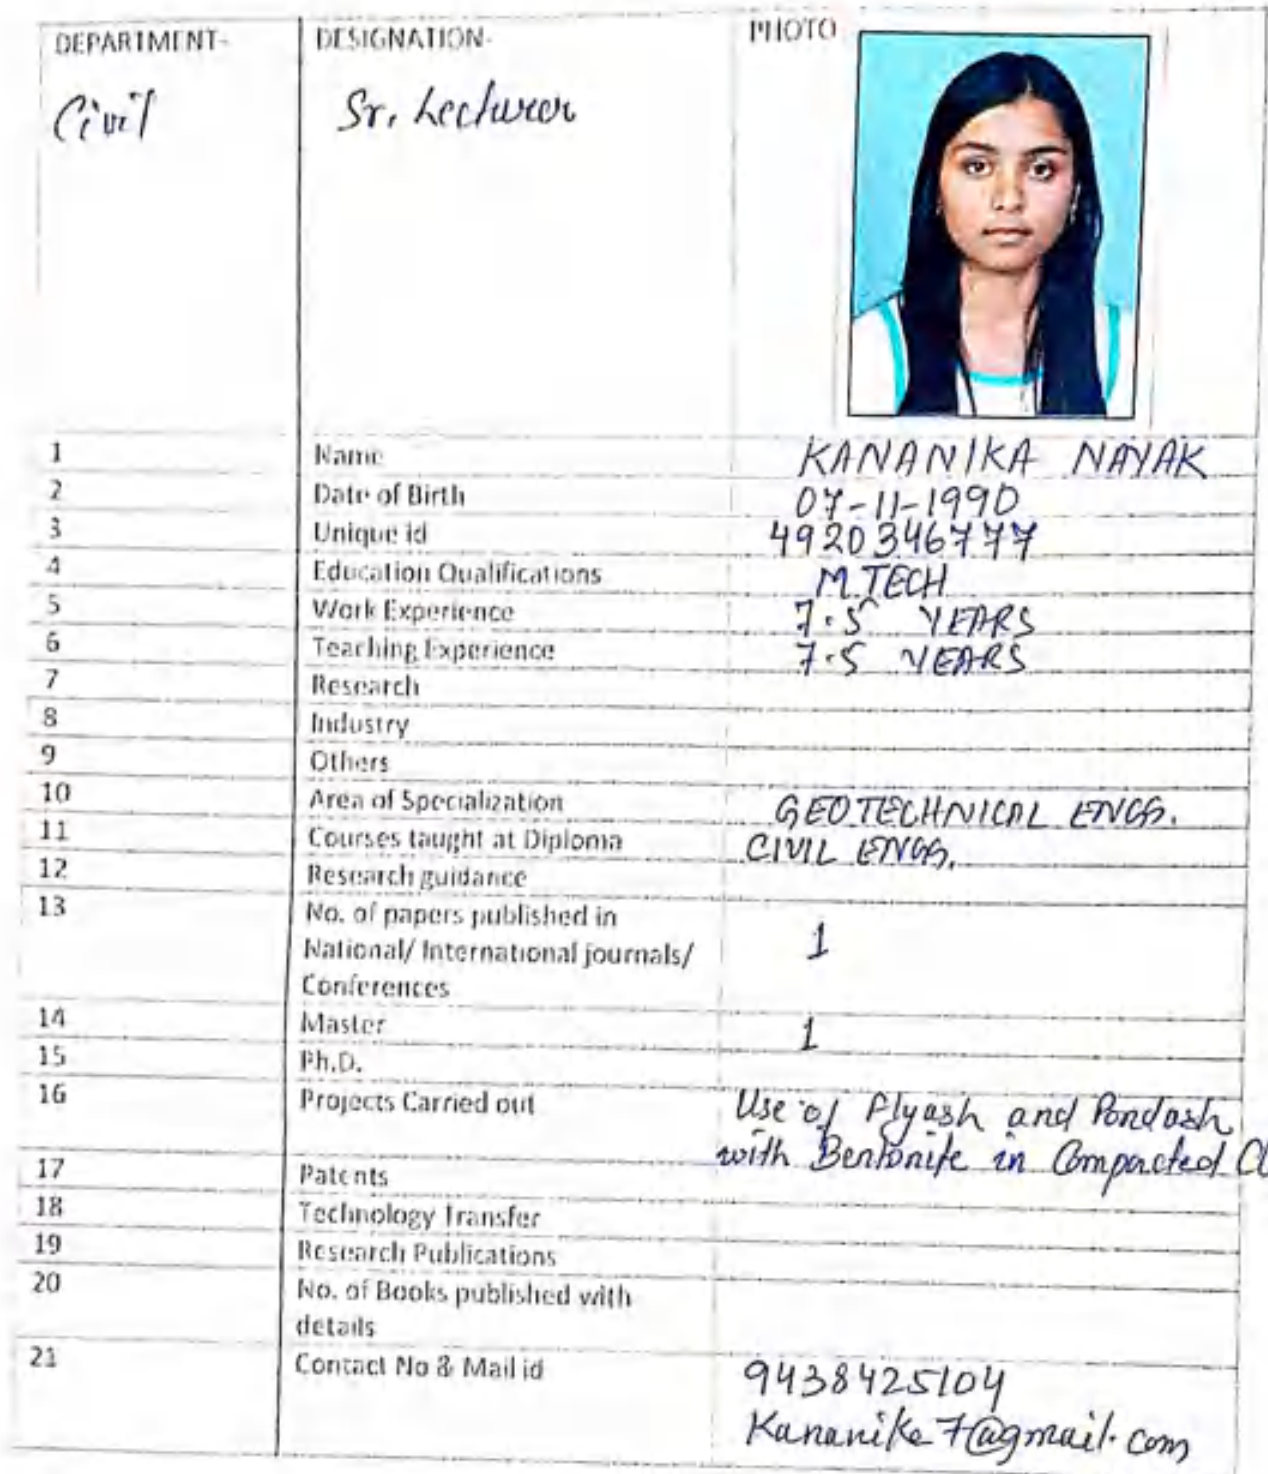 DEPARTMENT- DESIGNATION- PHOTO
Civil Sr. Lecturer
1 Name KANANIKA NAYAK
2 Date of Birth 07-11-1990
3 Unique id 4920346777
4 Education Qualifications M.TECH
5 Work Experience 7.5 YEARS
6 Teaching Experience 7.5 YEARS
7 Research
8 Industry
9 Others
10 Area of Specialization GEOTECHNICAL ENGG.
11 Courses taught at Diploma CIVIL ENGG.
12 Research guidance
13 No. of papers published in
National/ International journals/ 1
Conferences
14 Master 1
15 Ph.D.
16 Projects Carried out Use of Flyash and Pondash
with Bentonite in Compacted
17 Patents
18 Technology Transfer
19 Research Publications
20 No. of Books published with
details
21 Contact No & Mail id 9438425104
Kananika7@gmail.com